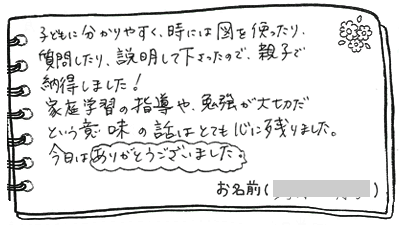 子どもに分かりやすく、時には図を使ったり、
質問したり、説明して下さったので、親子で
納得しました！
家庭学習の指導や、勉強が大切だ
という意味の話はとても心に残りました。
今日はありがとうございました。
お名前（　　　）